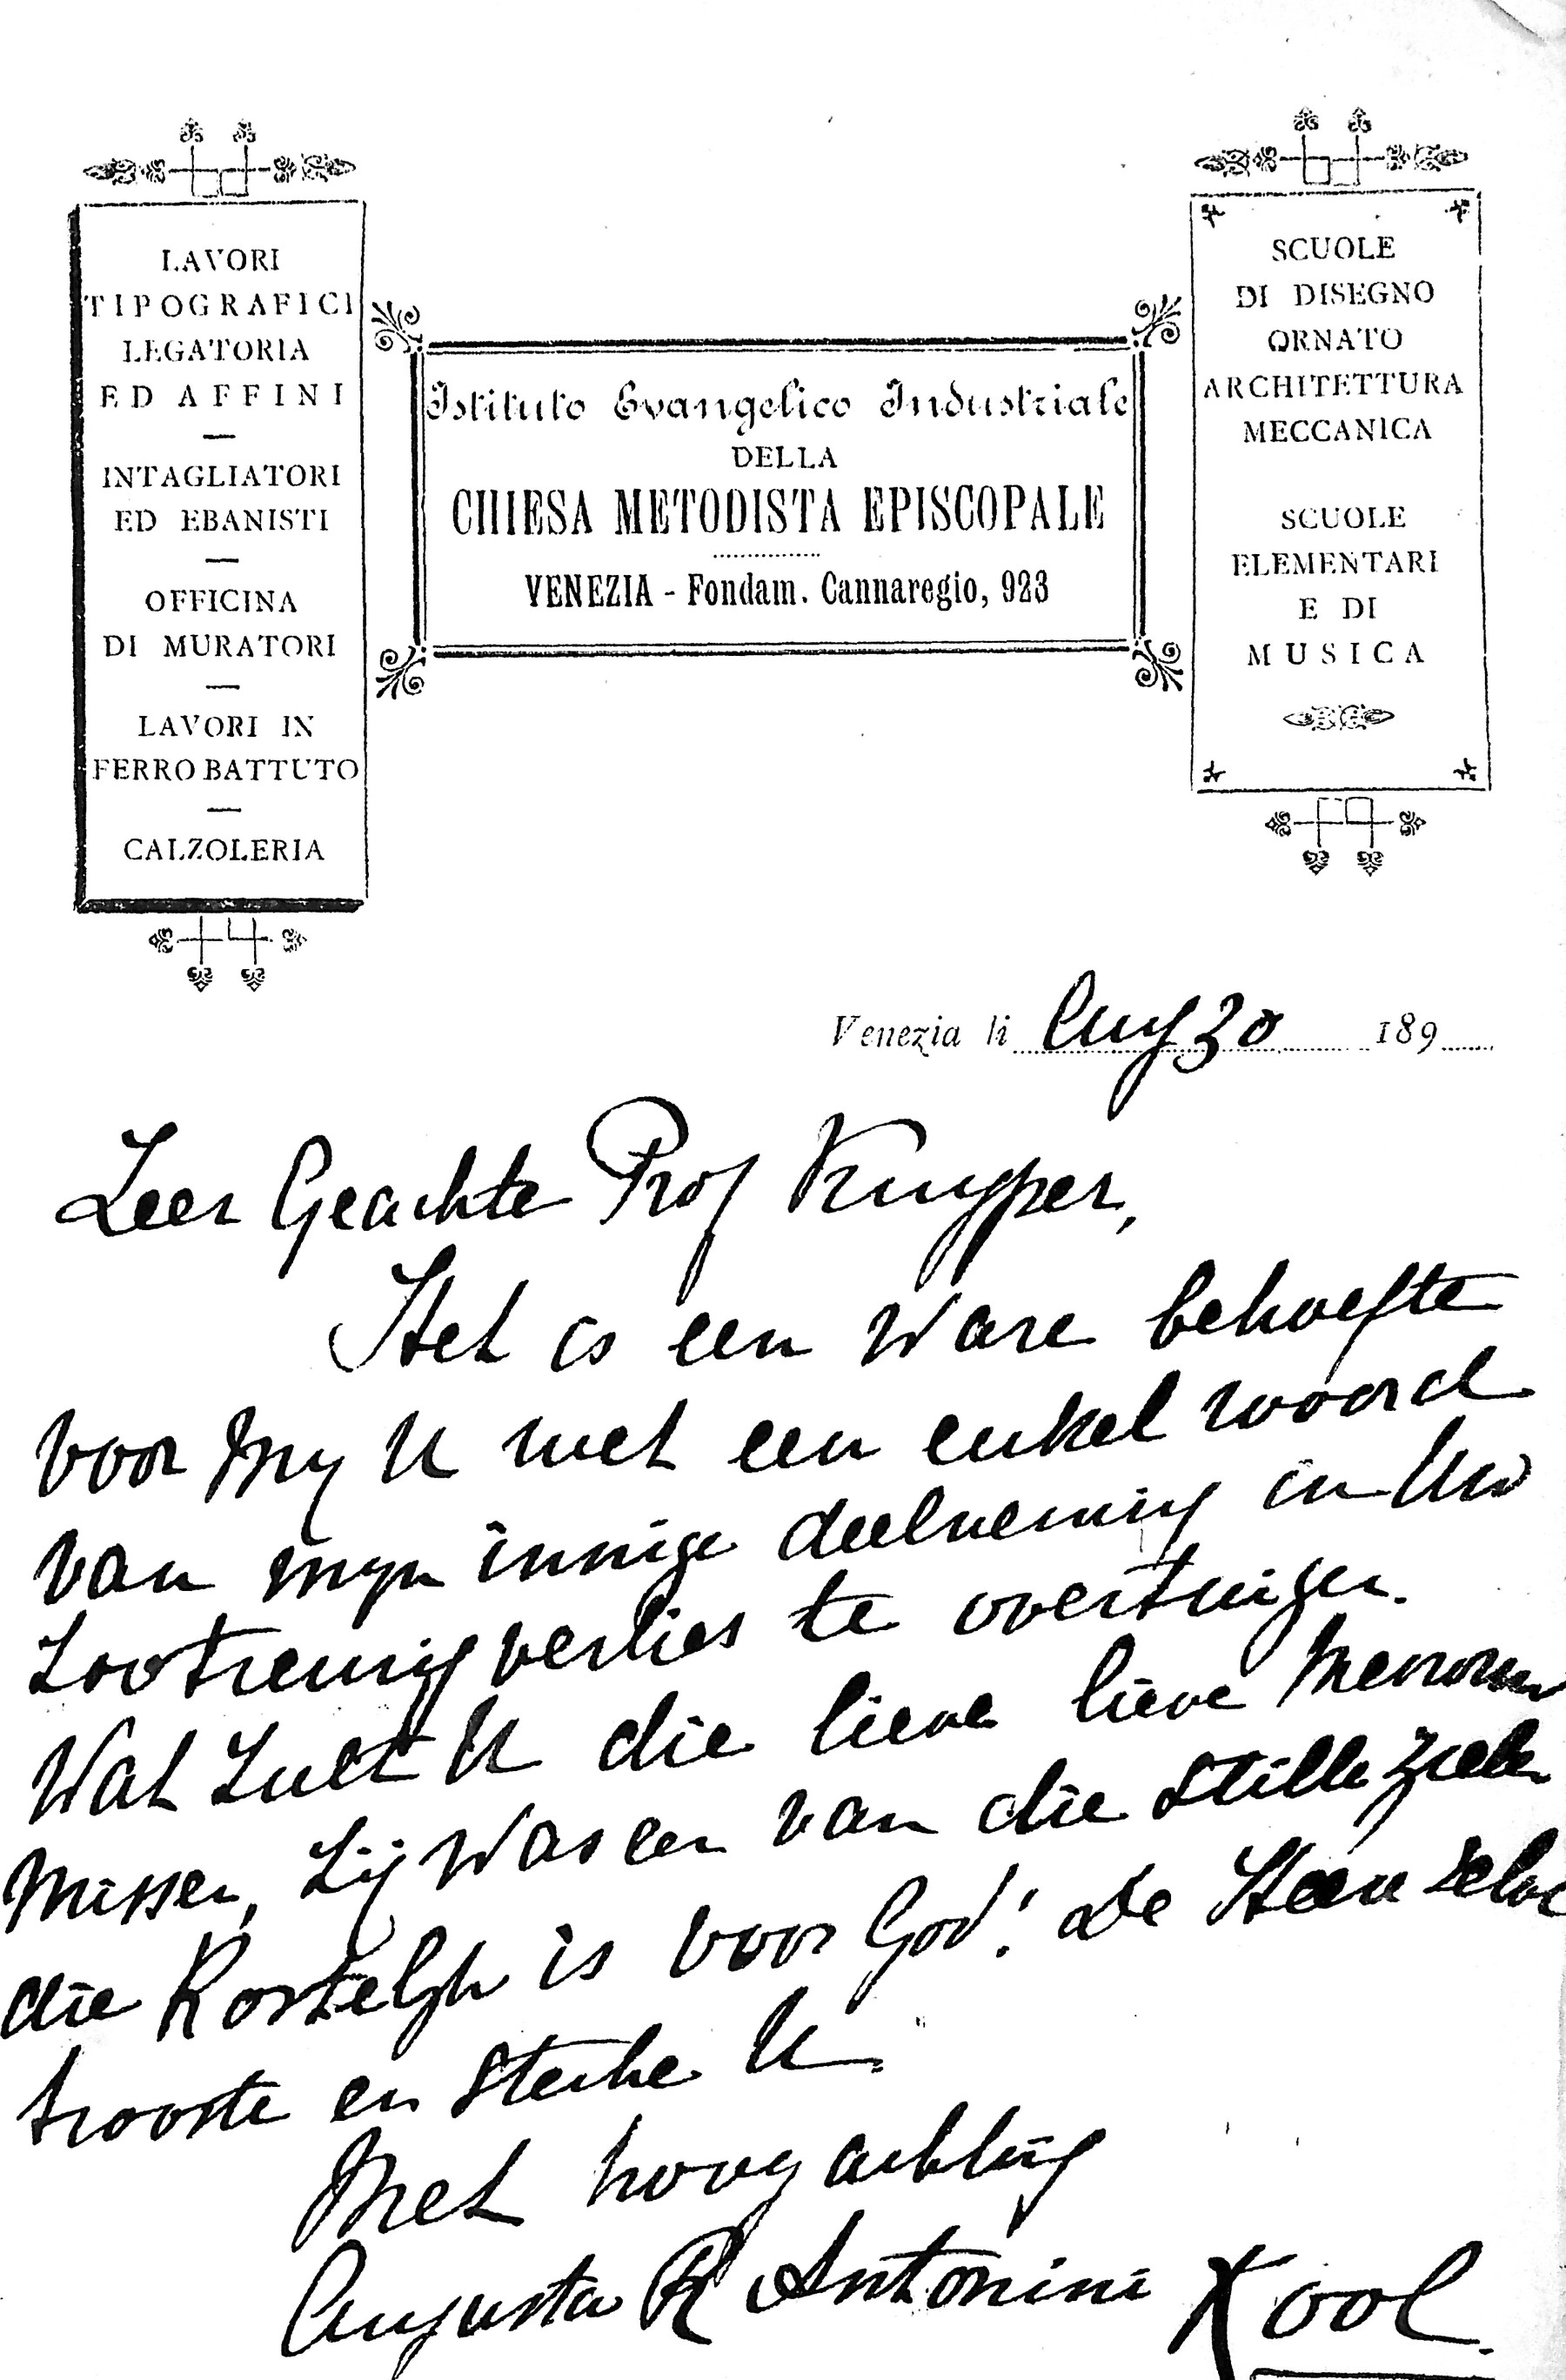 LAVORI
TIPOGRAFICI
LEGATORIA
ED AFFINI
INTAGLIATORI
ED EBANISTI
OFFICINA
DI MURATORI
LAVORI IN
FERRO BATTUTO
CALZOLERIA
Istituto Evangelico Industriale
DELLA
CHIESA METODISTA EPISCOPALE
VENEZIA - Fondam. Cannaregio, 923
SCUOLE
DI DISEGNO
ORNATO
ARCHITETTURA
MECCANICA
SCUOLE
ELEMENTARI
E DI
MUSICA
Venezia li Aug 30 189
Zeer Geachte Prof Kuyper,
Het is een ware behoefte
voor my U met een enkel woord
van myn innige deelneming in Uw
zootreurig verlies te overtuigen.
Wat zult U die lieve lieve Mevrouw
missen, zij was een van die stille zielen
die kostelyk is voor God! De Heere zelve
trooste en sterke U.
Met hoogachting
Augusta R Antonini Kool.